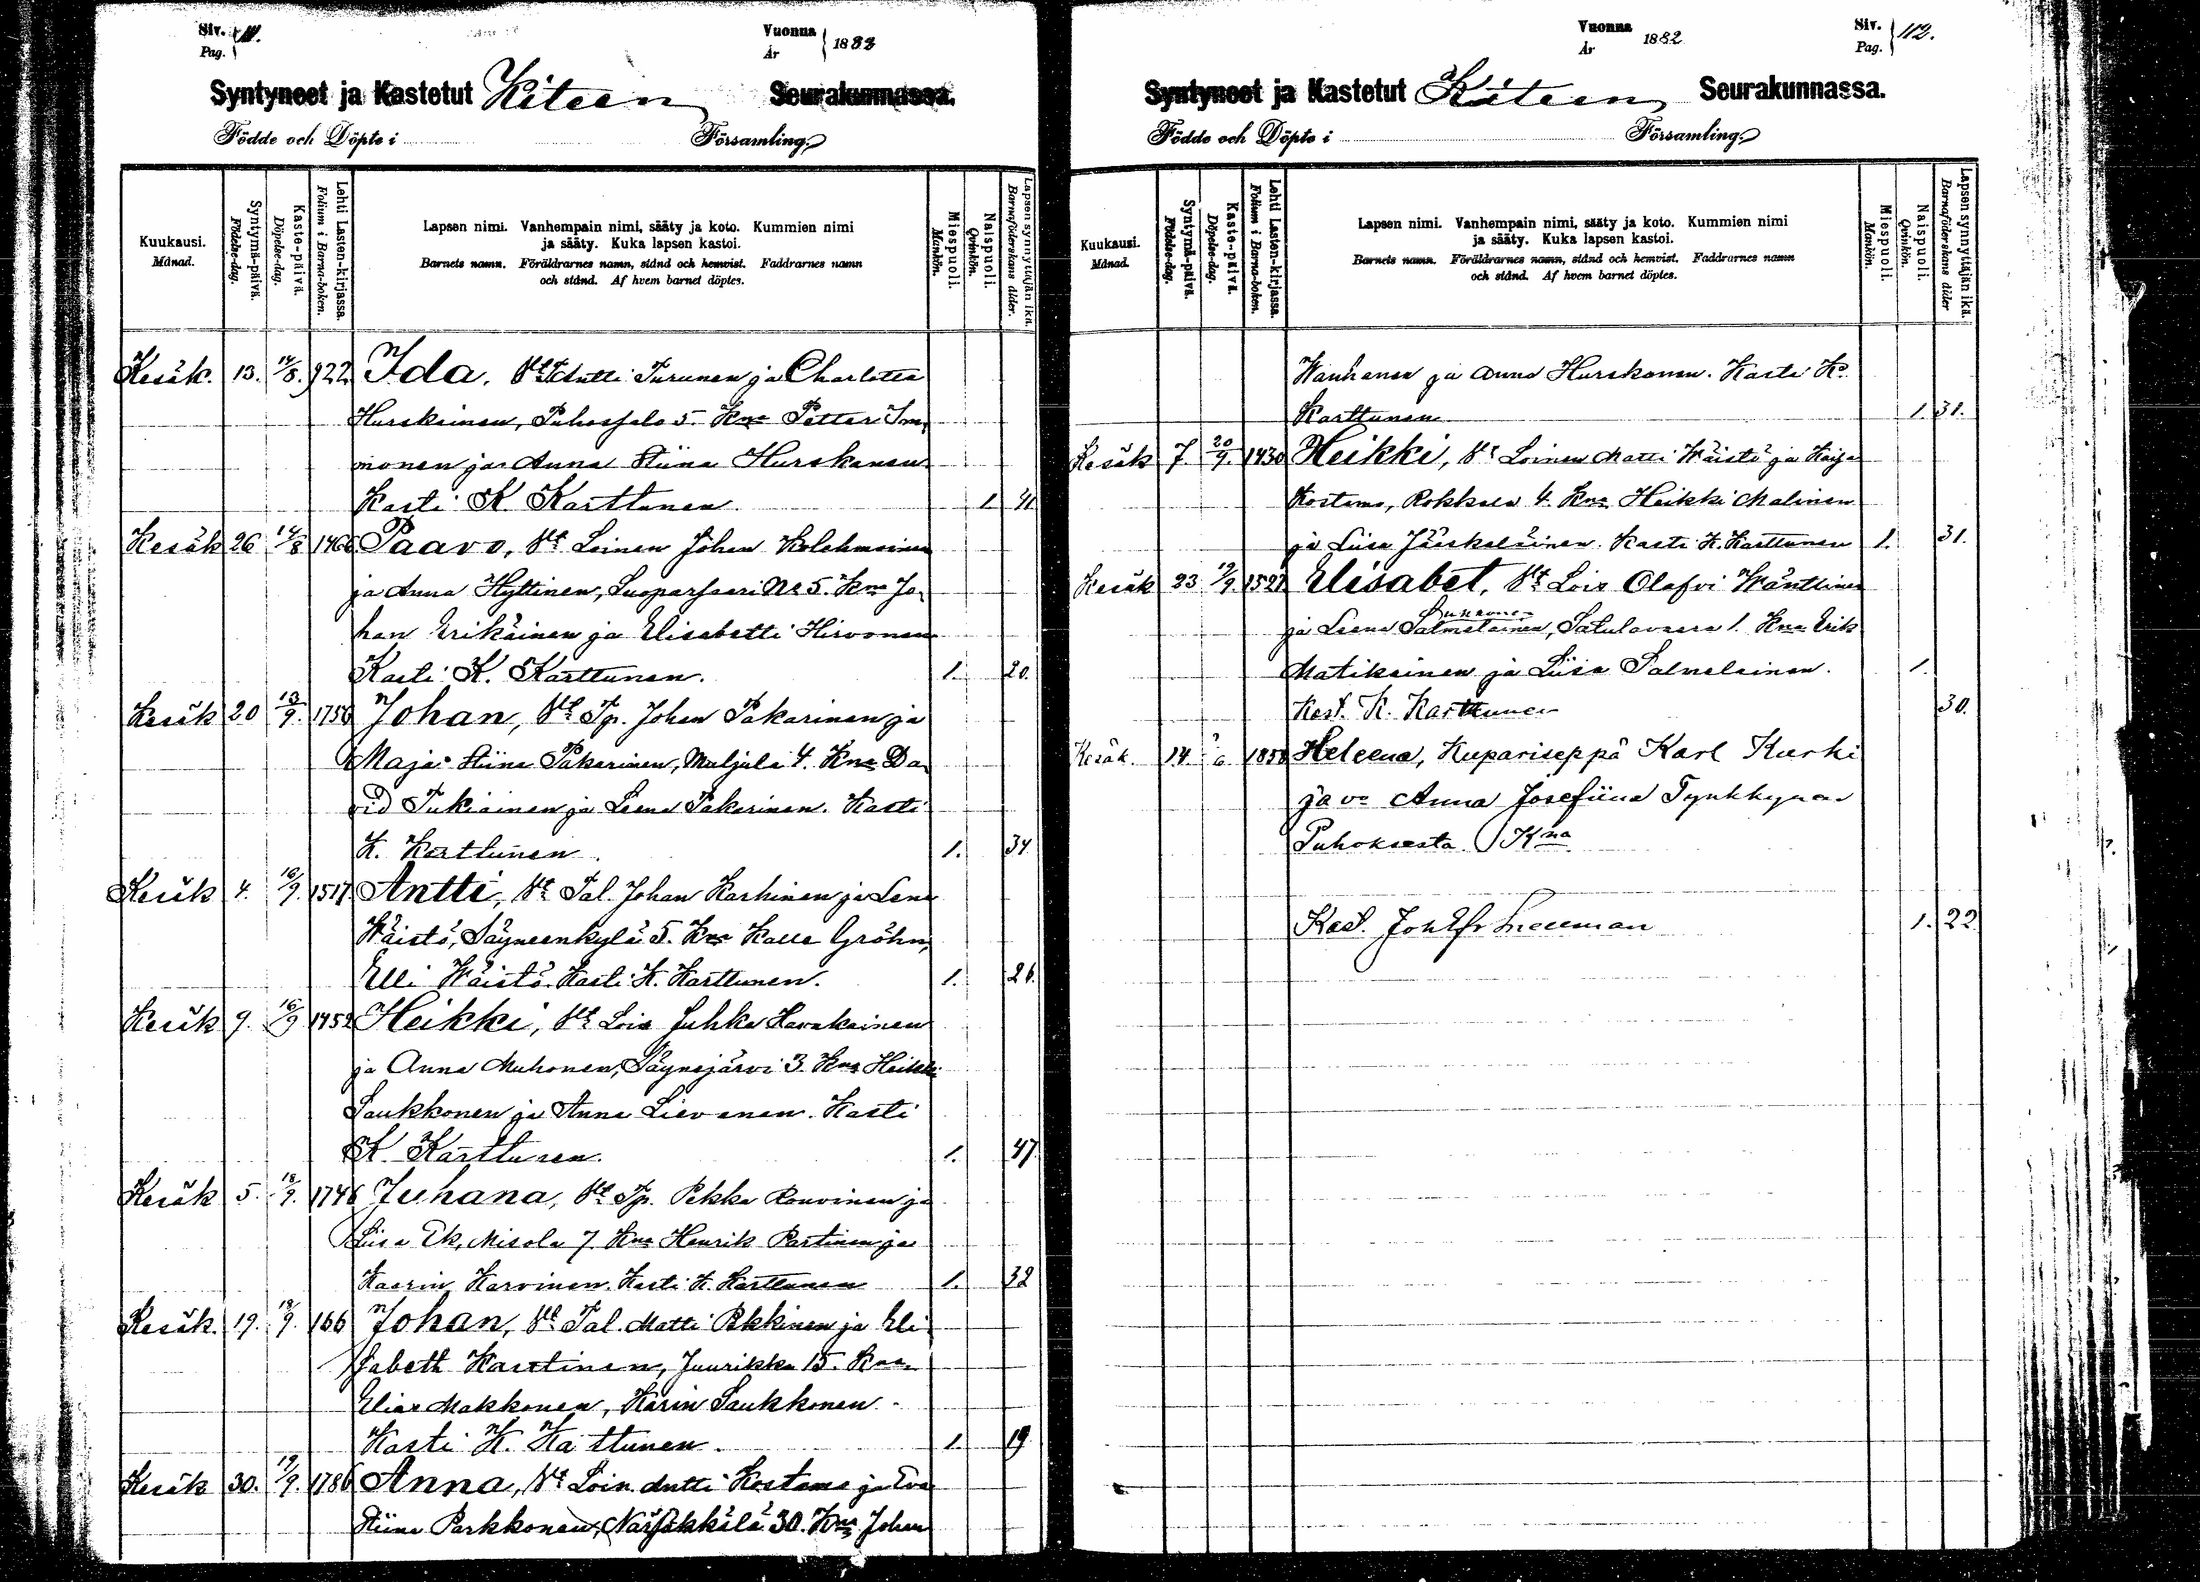 Siv. Pag. 111.
Vuonna År 1882
Syntyneet ja Kastetut Kiteen Seurakunnassa.
Födde och Döpte i Församling.
Kuukausi. Månad.
Syntymä-päivä. Födelse-dag.
Kaste-päivä. Döpelse-dag.
Lehti Lasten-kirjassa. Folium i Barna-boken.
Lapsen nimi. Vanhempain nimi, sääty ja koto. Kummien nimi
ja sääty. Kuka lapsen kastoi.
Barnets namn. Föräldrarnes namn, stånd och hemvist. Faddrarnes namn
och stånd. Af hvem barnet döptes.
Miespuoli. Mankön.
Naispuoli. Qvinkön.
Lapsen synnyttäjän ikä. Barnaföderskans ålder.
Kesäk. 13. 14/8. 922 Ida, Vt Antti Turunen ja Charlotta
Hurskainen, Puhossalo 5. Kna Petter Im-
monen ja Anna Stiina Hurskanen
Kasti K Karttunen. 1. 41
Kesäk 26 14/8 1466 Paavo, Vt Loinen Johan Kolehmainen
ja Anna Hyttinen, Luoparsaari No 5. Kna Jo-
han Erikäinen ja Elisabetti Hirvonen
Kasti K. Karttunen. 1. 20.
Kesäk 20 13/9. 1758 Johan, Vt Tp. Johan Pakarinen ja
Maja Stiina Pakarinen, Muljula 4. Kna Da-
vid Tukiainen ja Leena Pakarinen. Kasti
K. Karttunen. 1. 34
Kesäk 4. 16/9. 1517 Antti, Vt Tal. Johan Karhinen ja Lena
Wäistö, Säyneenkylä 5. Kna Kalle Gröhn,
Elli Wäistö. Kasti K. Karttunen. 1. 26.
Kesäk 9. 16/9 1452 Heikki, Vt Lois Juhka Havukainen
ja Anna Muhonen, Säynejärvi 3. Kna Heikki
Saukkonen ja Anna Lievonen. Kasti
K. Karttunen. 1. 47.
Kesäk 5. 18/9. 1746 Juhana, Vt Tp. Pekka Rouvinen ja
Liisa Ek, Misola 7. Kna Henrik Partinen ja
Kaarin Karvinen. Kasti K. Karttunen 1. 32
Kesäk. 19. 18/9. 166 Johan, Vt Tal. Matti Pekkinen ja Eli-
sabeth Karttinen, Juurikka 15. Kna
Elias Makkonen, Karin Saukkonen.
Kasti K. Kattunen. 1. 19
Kesäk 30. 19/9. 1786 Anna, Vt Loin. Antti Kostamo ja Eva
Stiina Parkkonen, Närsäkkälä 30. Kna Johan
Vuonna År 1882
Siv. Pag. 112.
Syntyneet ja Kastetut Kiteen Seurakunnassa.
Födde och Döpte i Församling.
Kuukausi. Månad.
Syntymä-päivä. Födelse-dag.
Kaste-päivä. Döpelse-dag.
Lehti Lasten-kirjassa. Folium i Barna-boken.
Lapsen nimi. Vanhempain nimi, sääty ja koto. Kummien nimi
ja sääty. Kuka lapsen kastoi.
Barnets namn. Föräldrarnes namn, stånd och hemvist. Faddrarnes namn
och stånd. Af hvem barnet döptes.
Miespuoli. Mankön.
Naispuoli. Qvinkön.
Lapsen synnyttäjän ikä. Barnaföderskans ålder
Wanhanen ja Anna Hurskonen. Kasti K.
Karttunen 1. 31.
Kesäk 7. 20/9. 1430 Heikki, Vt Loinen Matti Wäistö ja Kaisa
Kostamo, Rokkala 4. Kna Heikki Malinen
ja Liisa Jääskeläinen. Kasti K. Karttunen 1. 31.
Kesäk 23 19/9. 1521 Elisabet, Vt Lois Olafvi Wänttinen
ja Leena Salmelainen, Satulavaara 1. Kna Erik
Matikainen ja Liisa Salmelainen. 1.
Kast. K. Karttunen 30.
Kesäk 14 1858 Heleena, Kupariseppä Karl Kurki
ja vo Anna Josefiina Tynkkynen
Puhoksesta. Kna
Kast. Joh 1. 22